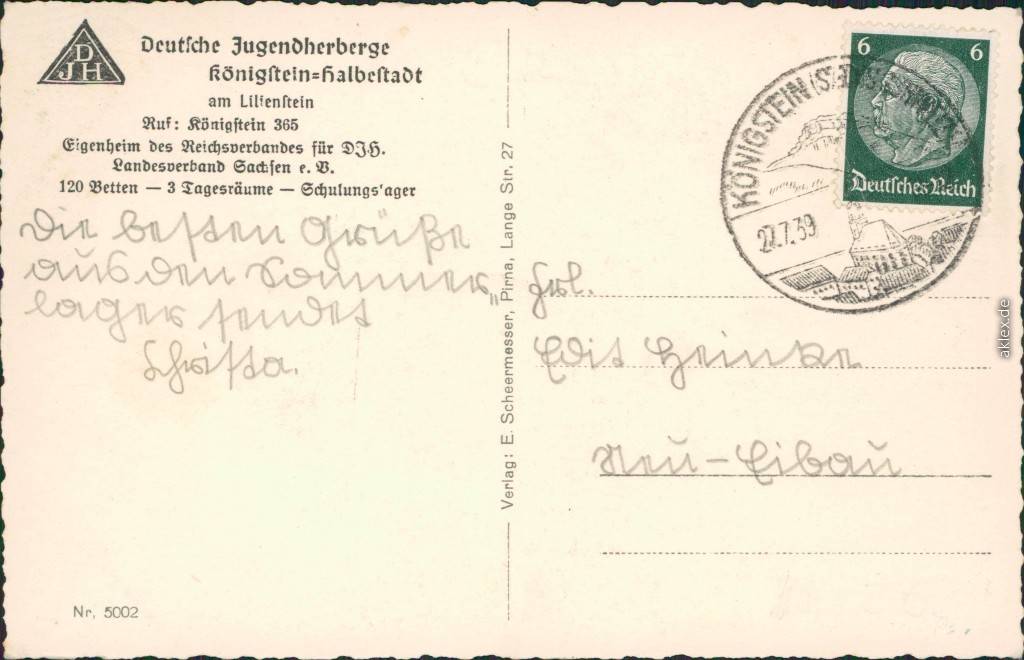 DJH
Deutsche Jugendherberge
Königstein=Halbestadt
am Lilienstein
Ruf: Königstein 365
Eigenheim des Reichsverbandes für DJH.
Landesverband Sachsen e. V.
120 Betten — 3 Tagesräume — Schulungs'ager
Die besten Grüße
aus den Sommer„
lager sendet
Christa.
Verlag: E. Scheermesser, Pirna, Lange Str. 27
6 6
Deutsches Reich
KÖNIGSTEIN
27.7.39
Frl.
Edit Heinke
Neu-Eibau
Nr. 5002
aklex.de